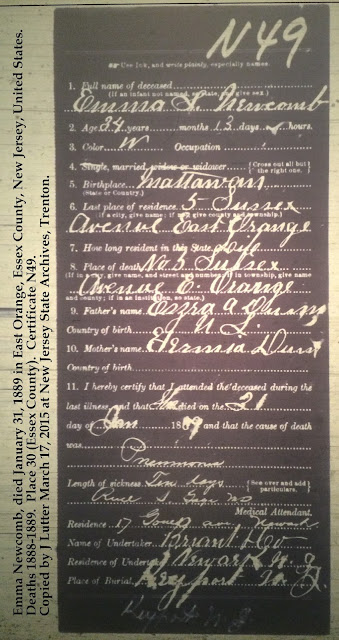 N49
Use Ink, and write plainly, especially names.
1. Full name of deceased
(If an infant not named, so state, and give sex.)
Emma Newcomb
2. Age 34 years months 13 days hours.
3. Color W Occupation
4. Single, married, widow or widower {Cross out all but the right one.
5. Birthplace Mattawan
(State or Country.)
6. Last place of residence 5 Sussex
(If a city, give name; if not, give county and township.)
Avenue East Orange
7. How long resident in this State
8. Place of death No 5 Sussex
(If in city, give name, and street and number; if in township, give name
Avenue E. Orange
and county; if in an institution, so state.)
9. Father's name Ezra A
Country of birth N J
10. Mother's name
Country of birth
11. I hereby certify that I attended the deceased during the
last illness, and that She died on the 31
day of Jan 1889 and that the cause of death
was
Pneumonia
Length of sickness Ten days {See over and add particulars.
Medical Attendant.
Residence 17 Newark
Name of Undertaker Brunt & Co
Residence of Undertaker Newark N. J.
Place of Burial, Keyport N. J.
Keyport N. J.
Emma Newcomb, died January 31, 1889 in East Orange, Essex County, New Jersey, United States.
Deaths 1888-1889. Place 30 (Essex County). Certificate N49.
Copied by J Lutter March 17, 2015 at New Jersey State Archives, Trenton.